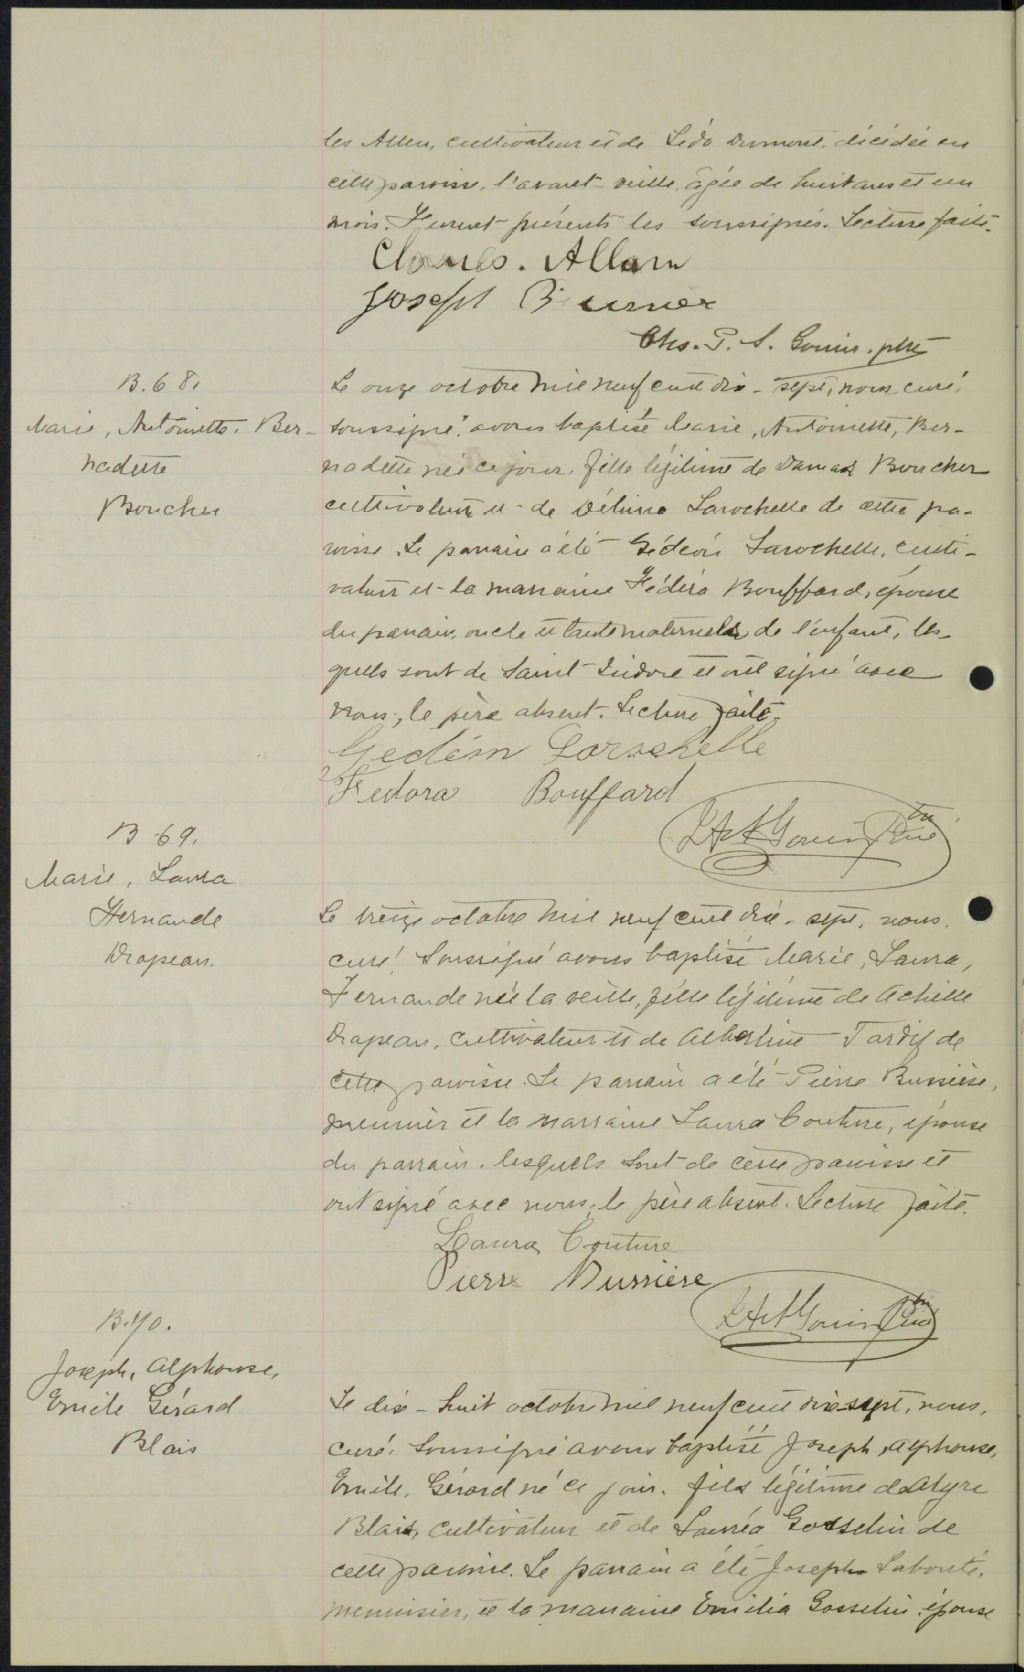 les Allen, cultivateur et de Léda Dumont, décédée en
cette paroisse, l'avant-veille, âgée de huit ans et un
mois. Furent présents les soussignés. Lecture faite.
Charles. Allen
Joseph
Chs. P. A. Gouin. ptre
B. 68.
Marie, Antoinette, Ber-
nadette
Boucher
Le onze octobre mil neuf cent dix-sept, nous curé,
soussigné, avons baptisé Marie, Antoinette, Ber-
nadette née ce jour, fille légitime de Damas Boucher
cultivateur et de Délima Larochelle de cette pa-
roisse. Le parrain a été Gédéon Larochelle, culti-
vateur et la marraine Fédora Bouffard, épouse
du parrain, oncle et tante maternels de l'enfant, les-
quels sont de Saint-Isidore et ont signé avec
nous, le père absent. Lecture faite.
Gedéon Larochelle
Fedora Bouffard
Gouin Ptre
B 69.
Marie, Laura
Fernande
Drapeau.
Le treize octobre mil neuf cent dix-sept, nous,
curé, soussigné avons baptisé Marie, Laura,
Fernande née la veille, fille légitime de Achille
Drapeau, cultivateur et de Albertine Tardif de
cette paroisse. Le parrain a été Pierre Bussière,
meunier et la marraine Laura Couture, épouse
du parrain, lesquels sont de cette paroisse et
ont signé avec nous, le père absent. Lecture faite.
Laura Couture
Pierre Bussière
Gouin Ptre
B. 70.
Joseph, Alphonse,
Emile Gérard
Blais
Le dix-huit octobre mil neuf cent dix-sept, nous,
curé, soussigné avons baptisé Joseph, Alphonse,
Emile, Gérard né ce jour, fils légitime de
Blais, cultivateur et de Lauréa Gosselin de
cette paroisse. Le parrain a été Joseph Labonté,
menuisier, et la marraine Emilia Gosselin, épouse